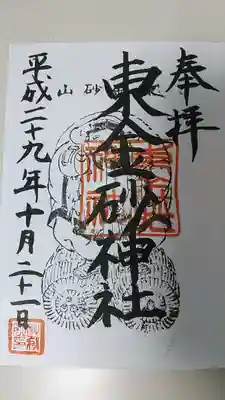 奉拝
東金砂神社
平成二十九年十月二十一日